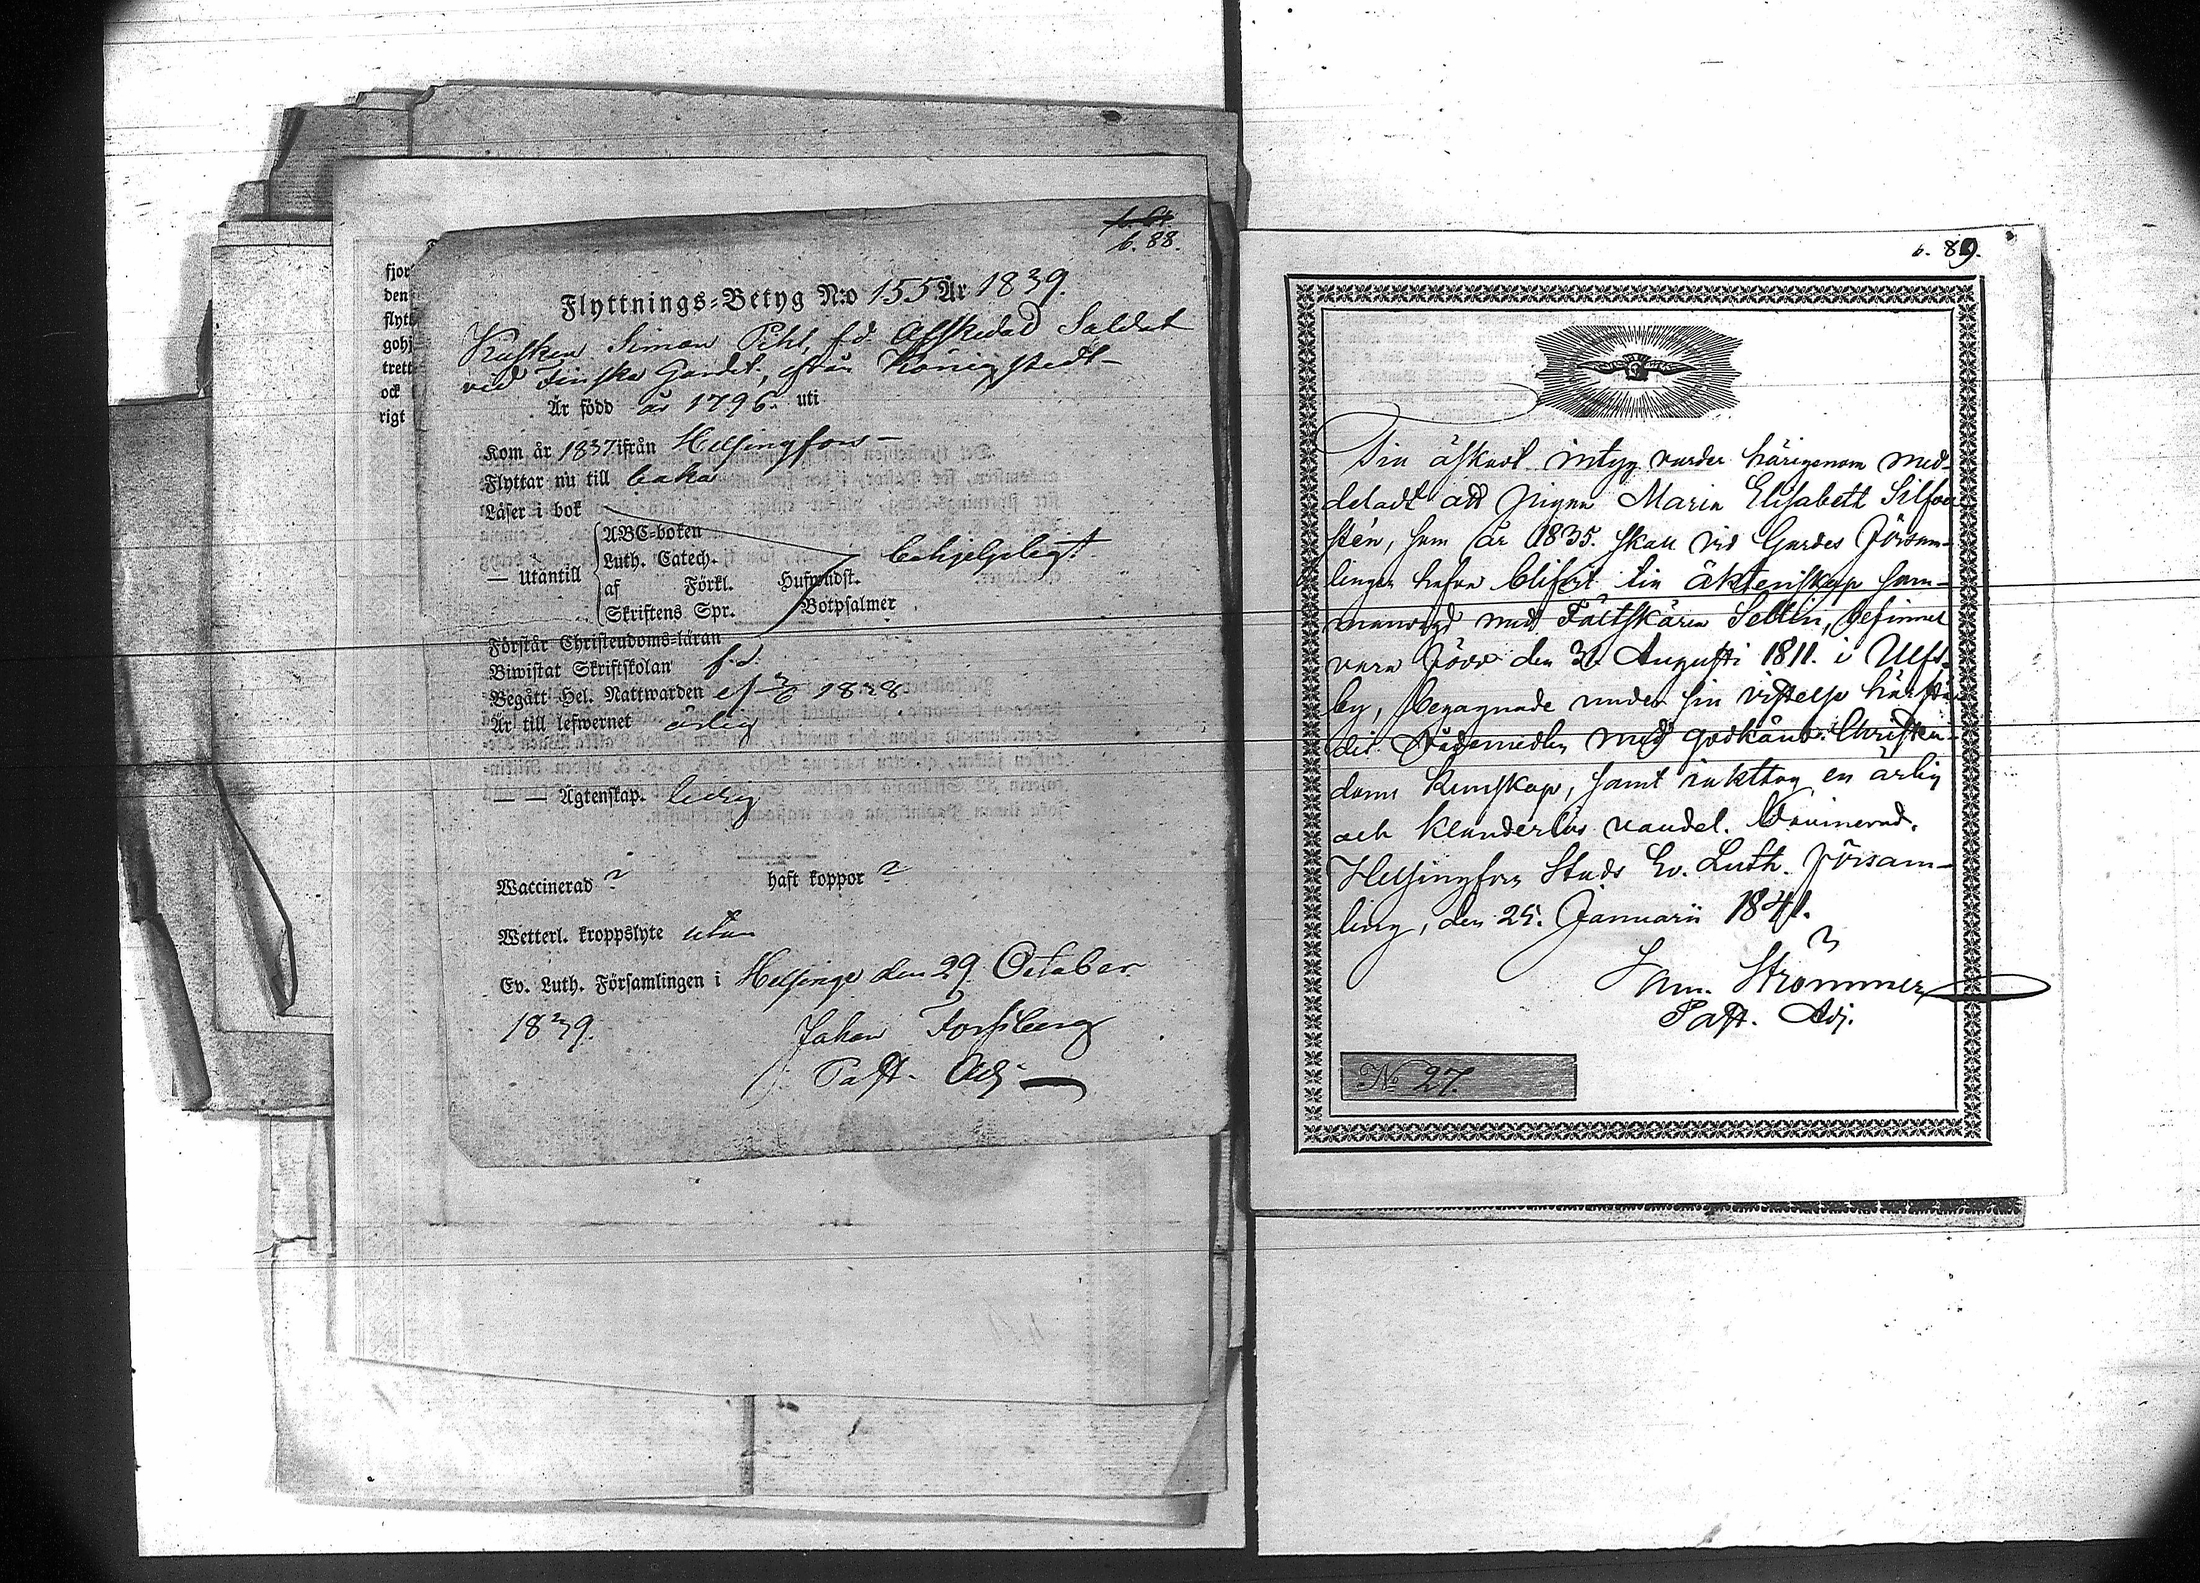 b. 88.
fjor
den
flytt
gobj
trett
ock
rigt
Flyttnings-Betyg N:o 155 År 1839.
Kusken Simon Pihl, f.d. Afskedad Soldat
vid Finska Gardet, från Königstedt
Är född år 1796. uti
Kom år 1837 ifrån Helsingfors
Flyttar nu till baka
Läser i bok
ABC-boken
Luth. Catech. behjelpligt
— Utantill af Förkl. Hufwudst.
Skriftens Spr. Botpsalmer
Förstår Christendoms-läran
Biwistat Skriftskolan f.d.
Begått Hel. Nattwarden 1838
Är till lefwernet ärlig
— — Ägtenskap. ledig
Waccinerad ? haft koppor ?
Wetterl. kroppslyte utan
Ev. Luth. Församlingen i Helsinge den 29 October
1839. Johan Forsberg
Past. Adj.
b. 89.
äskadt intyg varder härigenom med-
deladt att pigan Maria Elisabeth Silfver
stén, som år 1835. skall vid Gardes Försam-
lingen hafva blifvit i äktenskap sam-
manvigd med Fältskären Sellin, befinnes
vara född den 31 Augusti 1811. i Ulfs-
by, begagnade under sin vistelse härstä-
des Nådemedlen med godkänd Christen-
doms kunskap, samt iakttog en ärlig
och klanderlös vandel. Vaccinerad.
Helsingfors Stads Ev. Luth. Försam-
ling, den 25. Januarii 1841.
Strömmer
Past. Adj.
No 27.